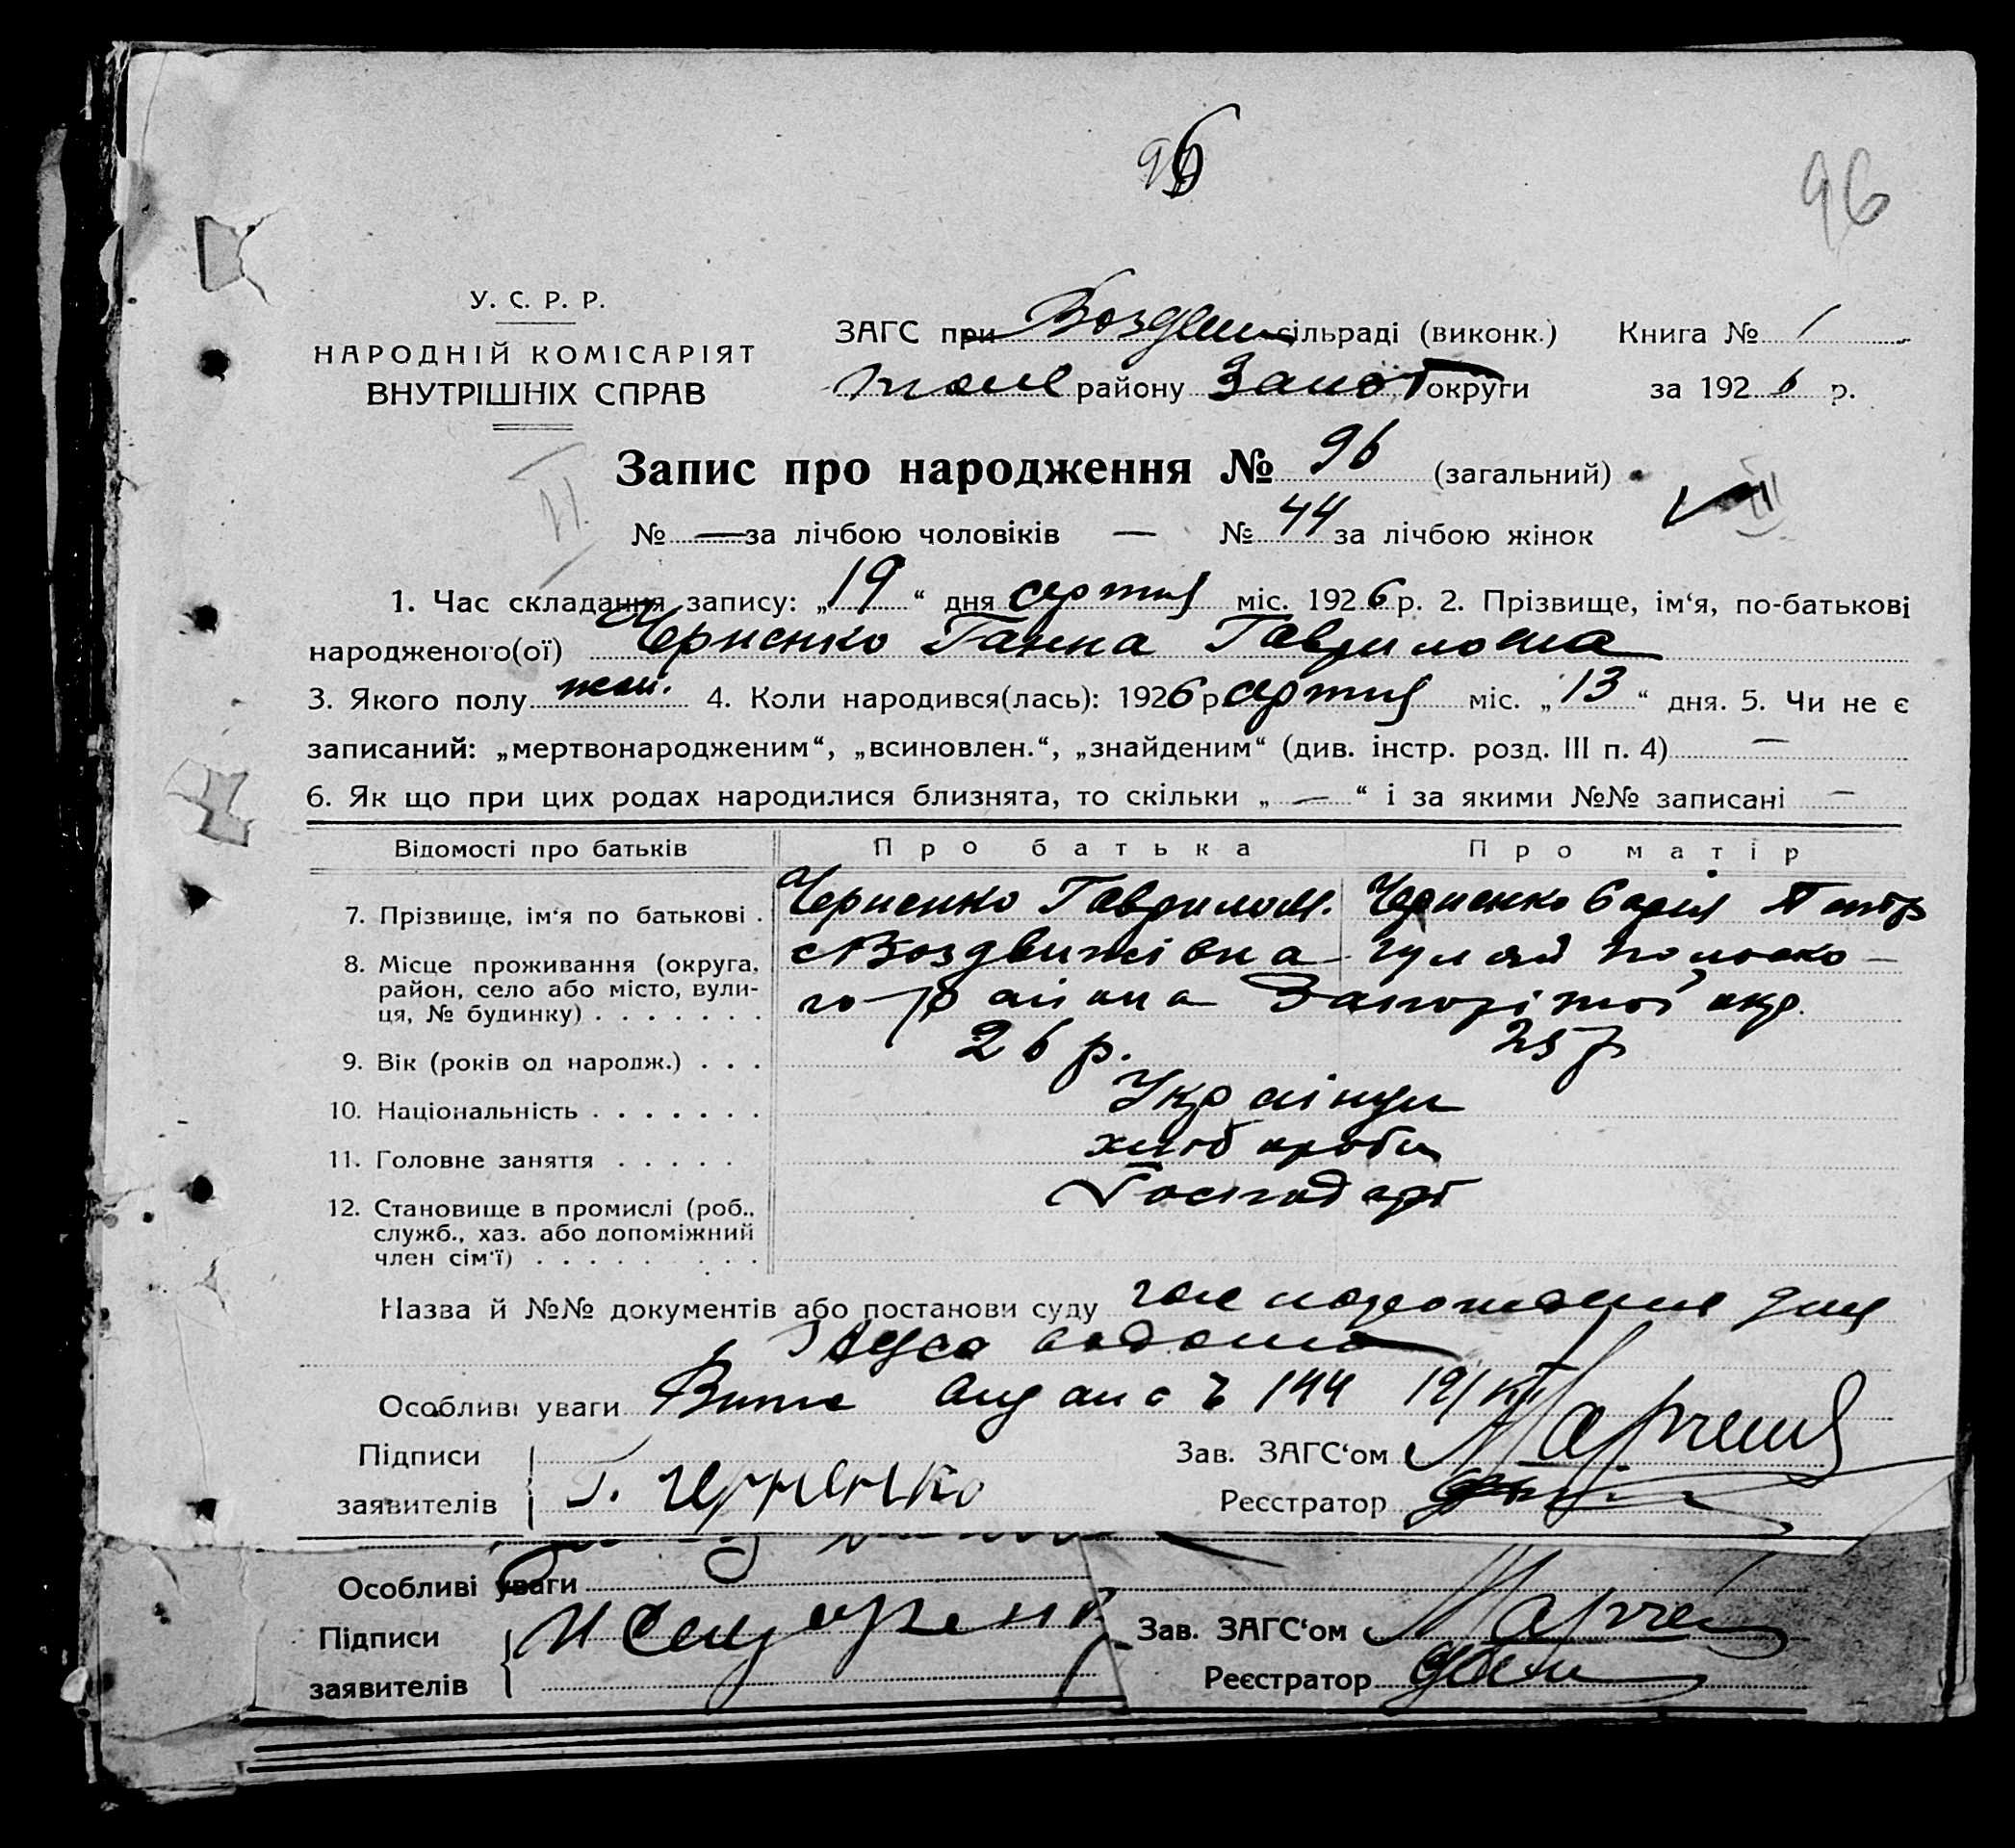 96
96
У. С. Р. Р.
НАРОДНІЙ КОМІСАРІЯТ
ВНУТРІШНІХ СПРАВ
ЗАГС при Воздвиж сільраді (виконк.) Книга № 1
району Запор округи за 1926 р.
Запис про народження № 96 (загальний)
№ — за лічбою чоловіків — № 44 за лічбою жінок
1. Час складання запису: „19“ дня серпня міс. 1926 р. 2. Прізвище, ім‘я, по-батькові
народженого(ої) Черненко Ганна Гавриловна
3. Якого полу жін. 4. Коли народився(лась): 1926 р серпня міс. „13“ дня. 5. Чи не є
записаний: „мертвонародженим“, „всиновлен.“, „знайденим“ (див. інстр. розд. III п. 4) —
6. Як що при цих родах народилися близнята, то скільки „ — “ і за якими №№ записані —
Відомості про батьків Про батька Про матір
7. Прізвище, ім‘я по батькові . Черненко Гаврило М. Черненко Петр
8. Місце проживання (округа, район, село або місто, вулиця, № будинку) . . . . . . . с Воздвижівка Гуляй Польсько-
го району Запоріжої окр.
9. Вік (років од народж.) . . . 26 р. 25 р
10. Національність . . . . . . . Українци
11. Головне заняття . . . . . хлібороби
12. Становище в промислі (роб., служб., хаз. або допоміжний член сім‘ї) . . . . . . . . Господарі
Назва й №№ документів або постанови суду
Особливі уваги Витяг видано 144 19/
Підписи заявителів Г. Черненко
Зав. ЗАГС‘ом
Реєстратор
Особливі уваги
Підписи
заявителів
Зав. ЗАГС‘ом
Реєстратор